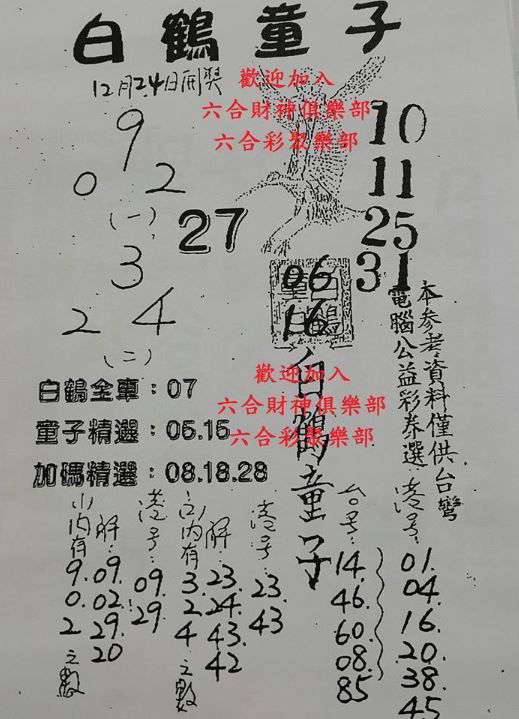 白鶴童子
12月24日開獎
歡迎加入
六合財神俱樂部
六合彩聚樂部
9
0 2
(一)
27
3
2 4
(二)
10
11
25
31
06
16
白鶴童子
白鶴童子
本參考資料僅供台灣
電腦公益彩券選
白鶴全車：07
童子精選：05.15
加碼精選：08.18.28
歡迎加入
六合財神俱樂部
六合彩聚樂部
(一)內有
9.
0.
2
之數
解：
09.
02.
29.
20
港号：
09.
29.
(二)內有
3.
2.
4
之數
解：
23.
24.
43.
42
港号
23.
43
台号：
14.
46.
60.
08.
85
港号：
01.
04.
16.
20.
38.
45